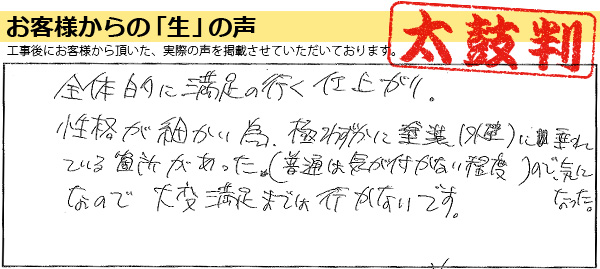 お客様からの「生」の声
工事後にお客様から頂いた、実際の声を掲載させていただいております。
太鼓判
全体的に満足の行く仕上がり。
性格が細かい為、極わずかに塗装(外壁)に垂れ
ている箇所があった。(普通は気が付かない程度)ので、気に
なった。
なので 大変満足までは行かないです。